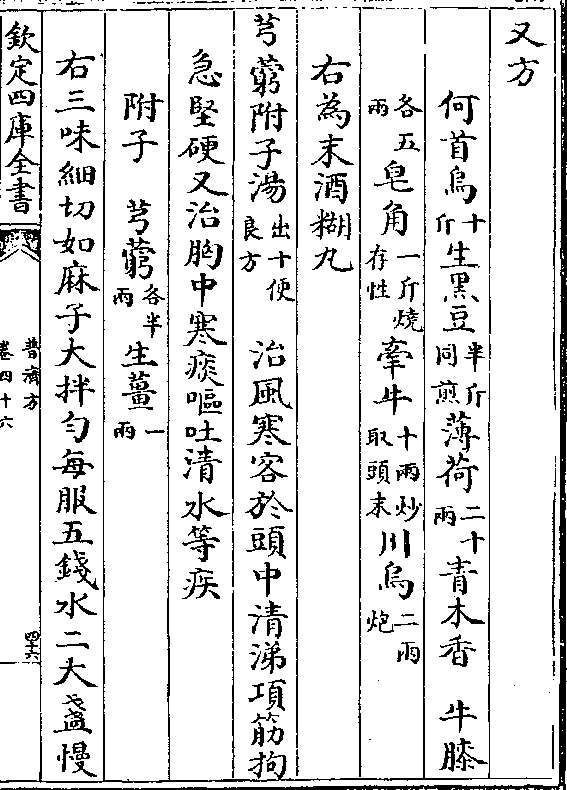 又方
何首烏十斤生黑豆半斤同煎薄荷二十兩青木香 牛膝
各五兩皂角一斤燒存性牽牛十兩炒取頭末川烏二兩炮
右為末酒糊丸
芎藭附子湯出十便良方 治風寒客於頭中清涕項筋拘
急堅硬又治胸中寒痰嘔吐清水等疾
附子 芎藭各半兩生薑一兩
右三味細切如麻子大拌勻每服五錢水二大盞慢
欽定四庫全書
普濟方
卷四十六
四十六